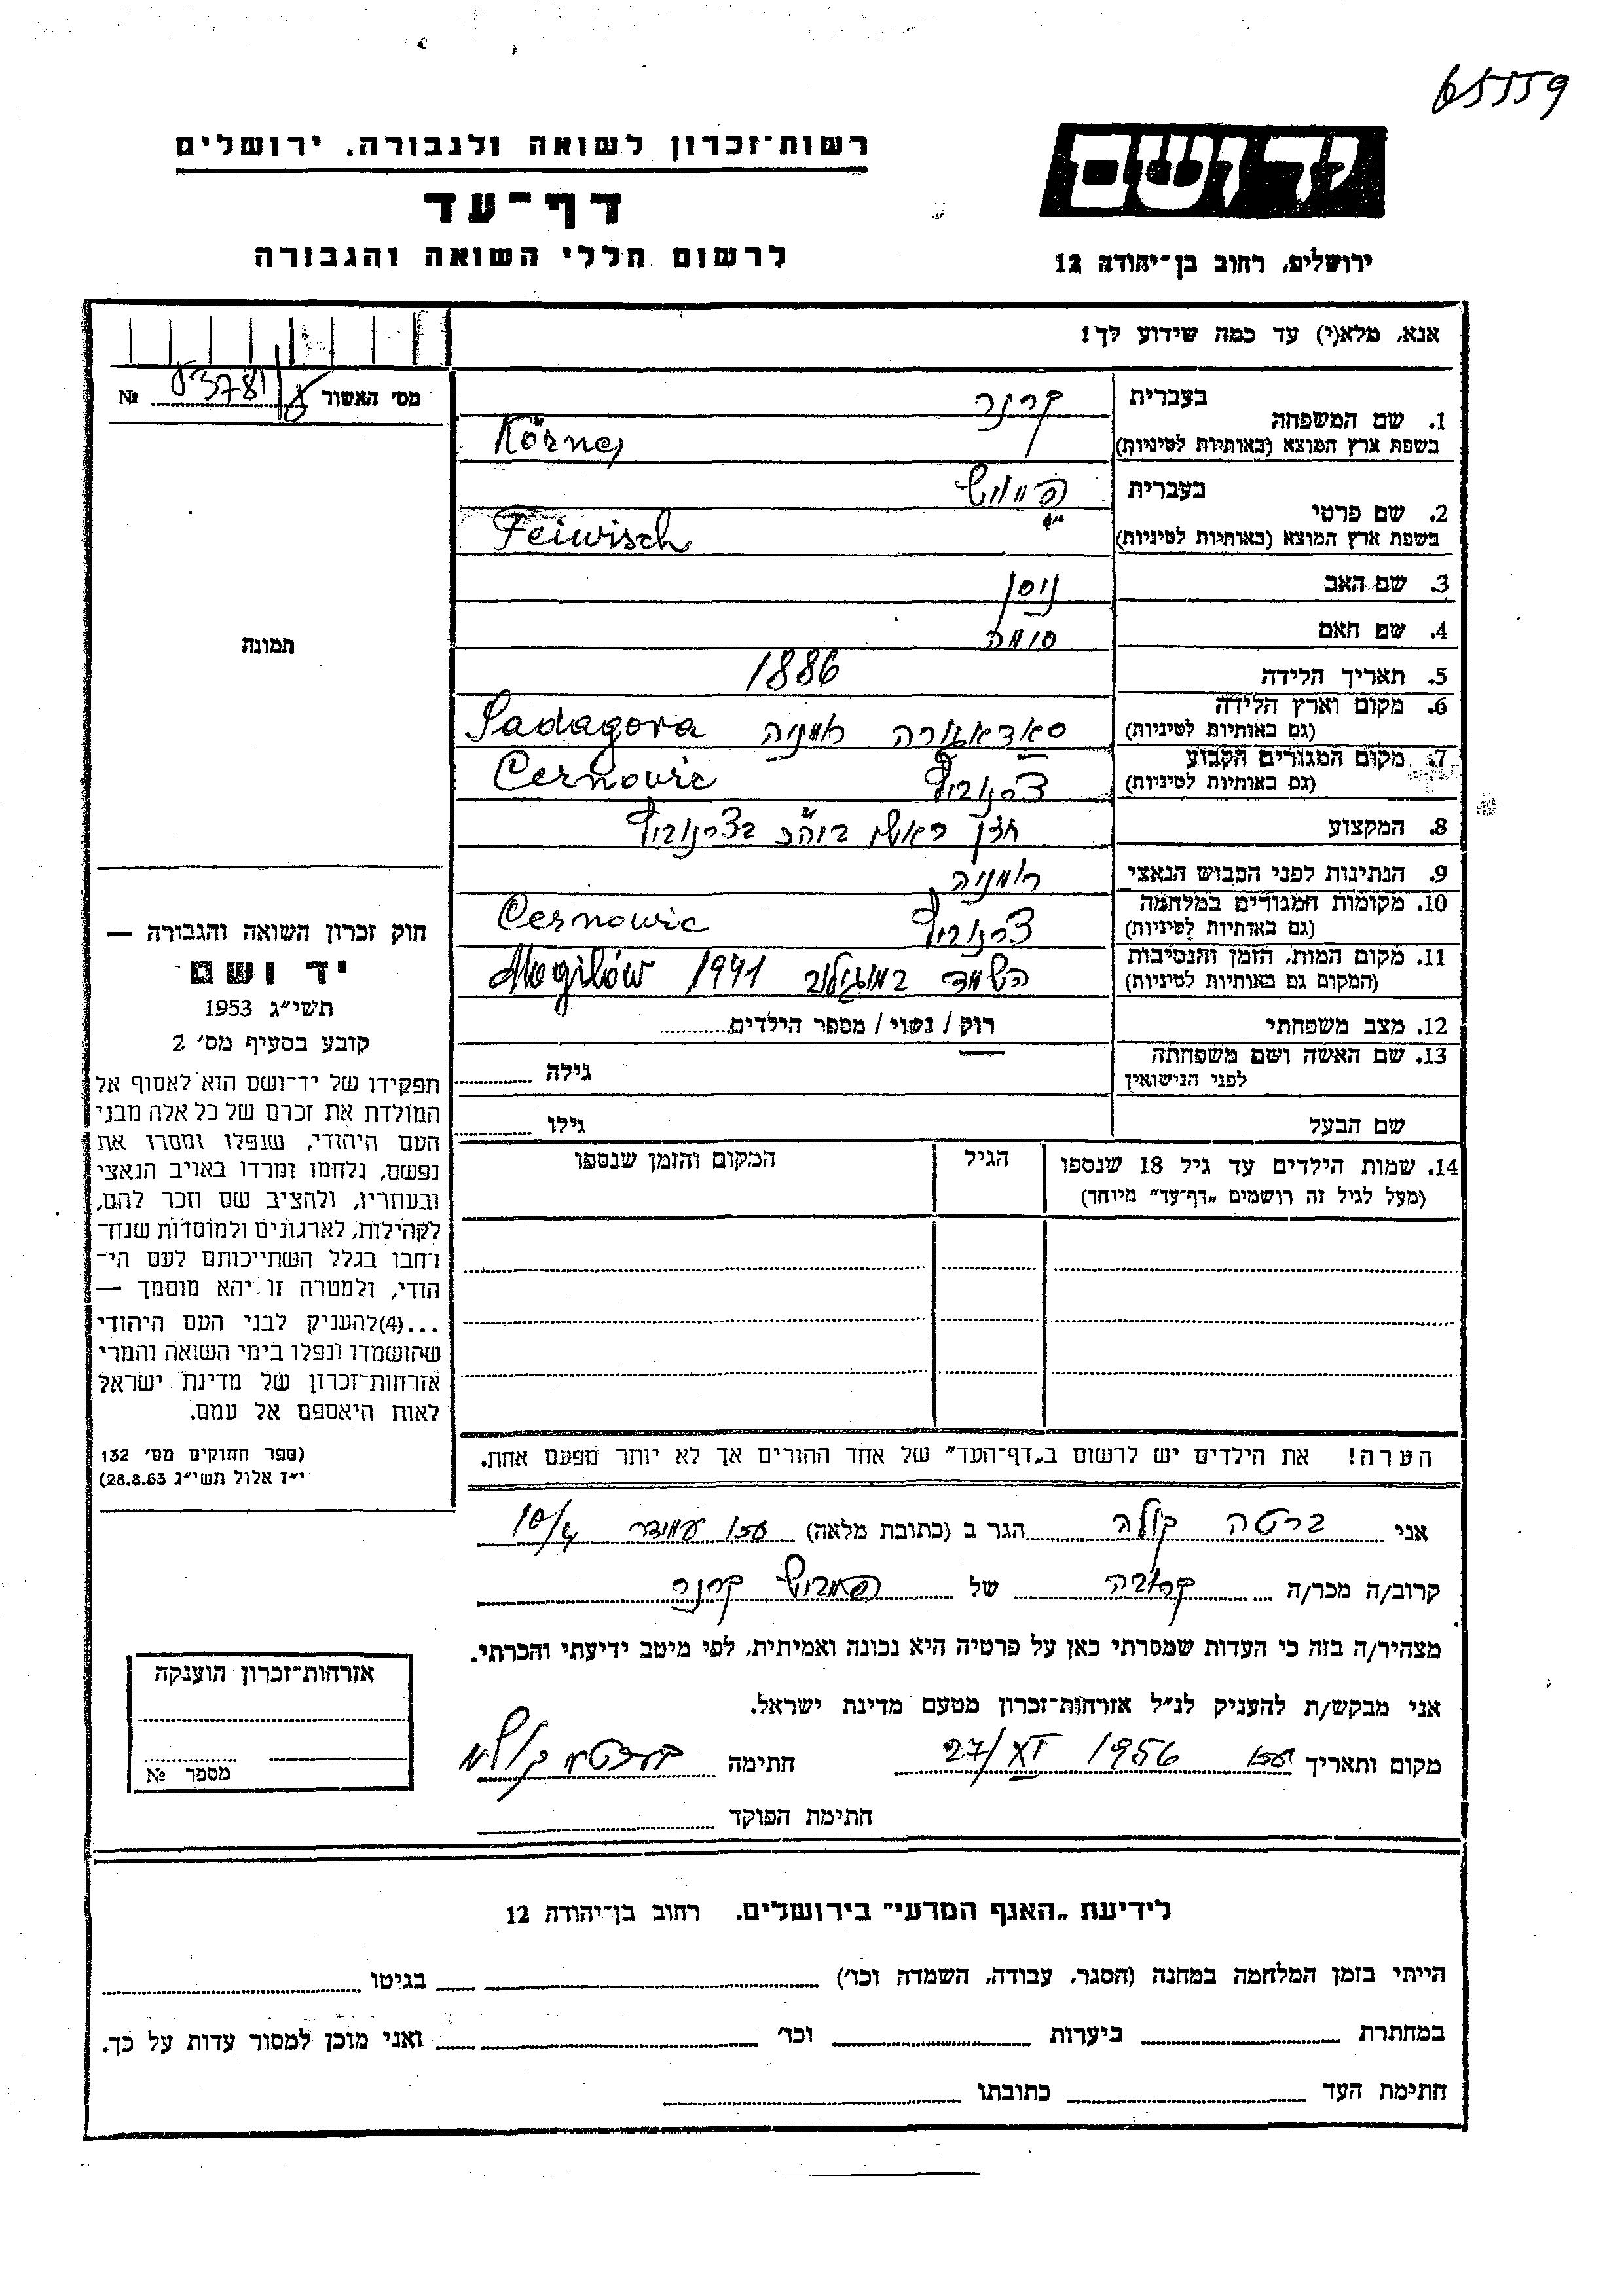 65559
רשות־זכרון לשואה ולגבורה, ירושלים
דף־עד
לרשום חללי השואה והגבורה
יד ושם
ירושלים, רחוב בן־יהודה 12
אנא, מלא(י) עד כמה שידוע לך!
מס׳ האשור № 53781
1. שם המשפחה
בעברית קרנר
בשפת ארץ המוצא (באותיות לטיניות) Körner
2. שם פרטי
בעברית פייוויש
בשפת ארץ המוצא (באותיות לטיניות) Feiwisch
3. שם האב ניסן
4. שם האם סימה
5. תאריך הלידה 1886
6. מקום וארץ הלידה
(גם באותיות לטיניות) סאדאגורה רומניה Sadagora
7. מקום המגורים הקבוע
(גם באותיות לטיניות) צרנוביץ Cernowic
8. המקצוע חזן ראשי ביהכ״נ בצרנוביץ
9. הנתינות לפני הכבוש הנאצי רומניה
10. מקומות המגורים במלחמה
(גם באותיות לטיניות) צרנוביץ Cernowic
11. מקום המות, הזמן והנסיבות
(המקום גם באותיות לטיניות) השמד במוגילוב 1941 Mogilów
12. מצב משפחתי רוק / נשוי / מספר הילדים
13. שם האשה ושם משפחתה
לפני הנישואין גילה
שם הבעל גילו
14. שמות הילדים עד גיל 18 שנספו
(מעל לגיל זה רושמים „דף־עד״ מיוחד)
הגיל
המקום והזמן שנספו
הערה! את הילדים יש לרשום ב„דף־העד״ של אחד ההורים אך לא יותר מפעם אחת.
תמונה
חוק זכרון השואה והגבורה —
יד ושם
תשי״ג 1953
קובע בסעיף מס׳ 2
תפקידו של יד־ושם הוא לאסוף אל
המולדת את זכרם של כל אלה מבני
העם היהודי, שנפלו ומסרו את
נפשם, נלחמו ומרדו באויב הנאצי
ובעוזריו, ולהציב שם וזכר להם,
לקהילות, לארגונים ולמוסדות שנח־
רחבו בגלל השתייכותם לעם הי־
הודי, ולמטרה זו יהא מוסמך —
...(4)להעניק לבני העם היהודי
שהושמדו ונפלו בימי השואה והמרי
אזרחות־זכרון של מדינת ישראל
לאות היאספם אל עמם.
(ספר החוקים מס׳ 132
י״ז אלול תשי״ג 28.8.53)
אני ברטה קולה הגר ב (כתובת מלאה) עכו עמידר 10/4
קרוב/ה מכר/ה קרובה של פייביש קרנר
מצהיר/ה בזה כי העדות שמסרתי כאן על פרטיה היא נכונה ואמיתית, לפי מיטב ידיעתי והכרתי.
אני מבקש/ת להעניק לנ״ל אזרחות־זכרון מטעם מדינת ישראל.
מקום ותאריך עכו 27/XI 1956 חתימה
חתימת הפוקד
אזרחות־זכרון הוענקה
מספר №
לידיעת „האגף המדעי״ בירושלים. רחוב בן־יהודה 12
הייתי בזמן המלחמה במחנה (הסגר, עבודה, השמדה וכו׳) בגיטו
במחתרת ביערות וכו׳ ואני מוכן למסור עדות על כך.
חתימת העד כתובתו